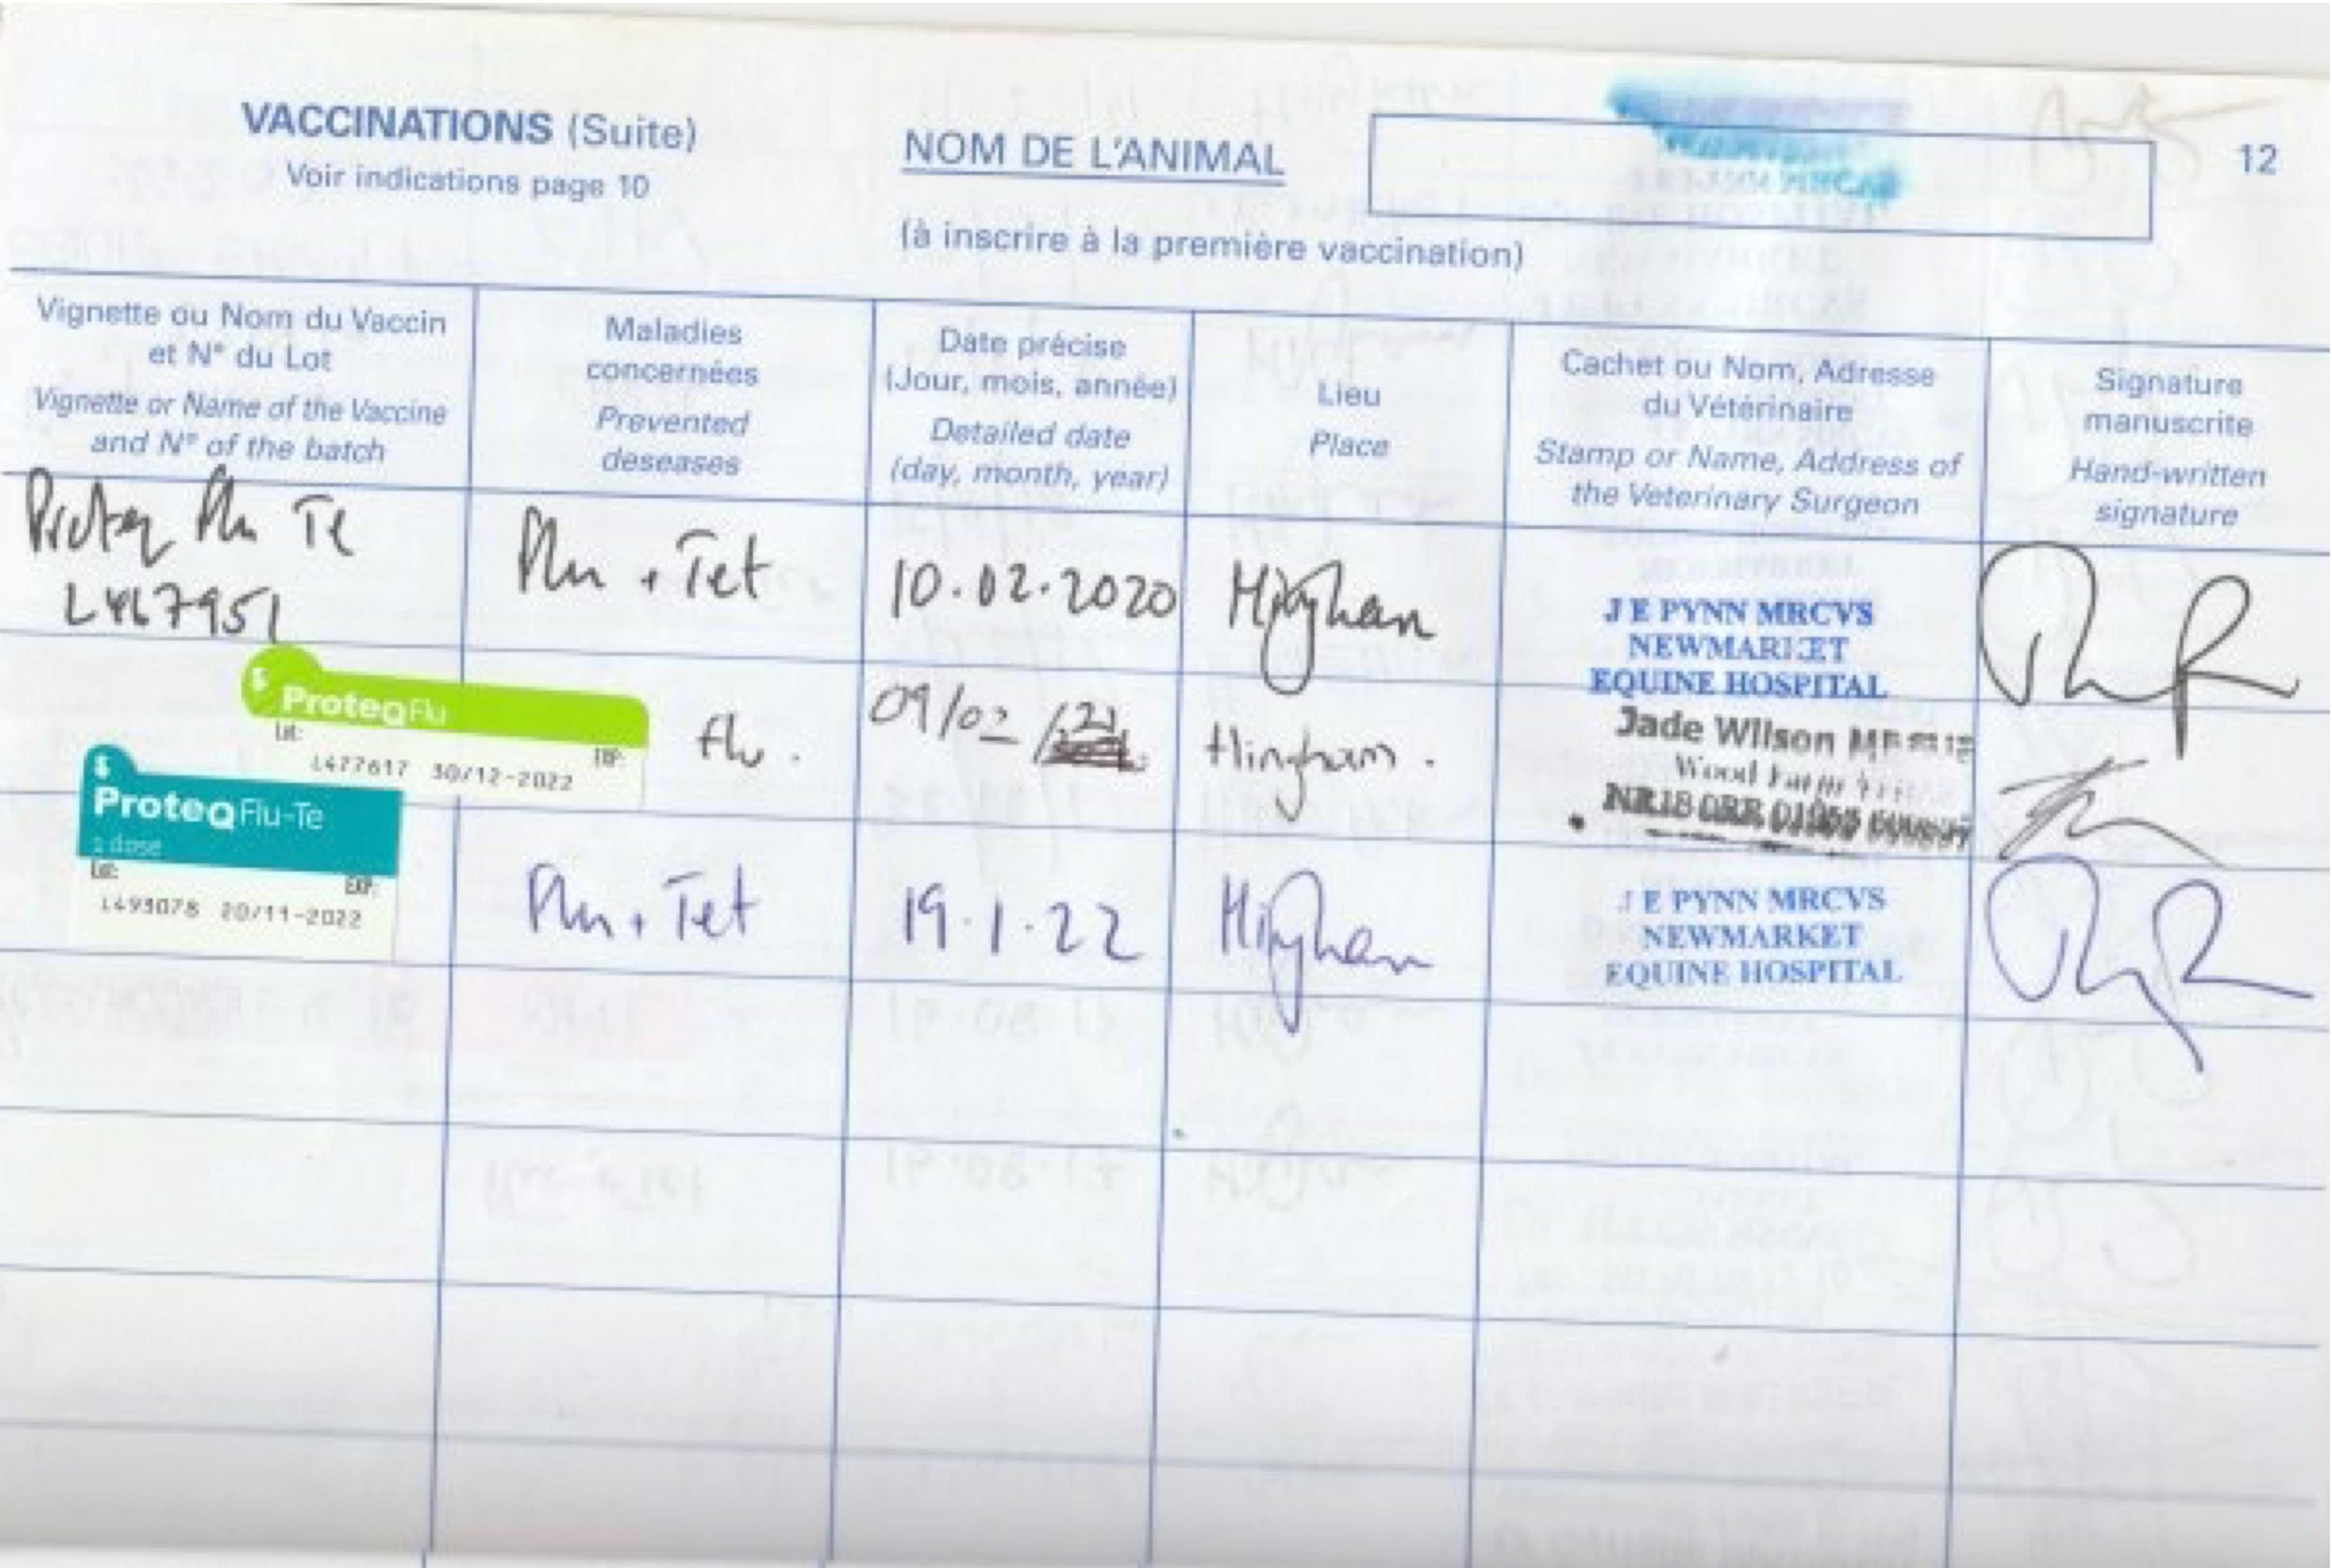 VACCINATIONS (Suite)
Voir indications page 10
NOM DE L'ANIMAL
(à inscrire à la première vaccination)
12
Vignette ou Nom du Vaccin
et N° du Lot
Vignette or Name of the Vaccine
and N° of the batch
Maladies
concernées
Prevented
deseases
Date précise
(Jour, mois, année)
Detailed date
(day, month, year)
Lieu
Place
Cachet ou Nom, Adresse
du Vétérinaire
Stamp or Name, Address of
the Veterinary Surgeon
Signature
manuscrite
Hand-written
signature
Proteq Flu Te
L467951
Flu + Tet
10.02.2020
Hingham
J E PYNN MRCVS
NEWMARKET
EQUINE HOSPITAL
ProteqFlu
Lot:
EXP:
L477617 30/12-2022
flu.
09/02/21
Hingham.
Jade Wilson
Wood Farm
NR18
ProteqFlu-Te
1 dose
Lot:
EXP:
L493078 20/11-2022
Flu + Tet
19.1.22
Hingham
J E PYNN MRCVS
NEWMARKET
EQUINE HOSPITAL